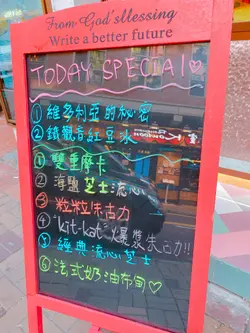 From God sBlessing
Write a better future
TODAY SPECIAL♡
① 維多利亞的秘密
② 鐵觀音紅豆冰
① 雙重摩卡
② 海鹽芝士流心
③ 粒粒朱古力
④ "kit-kat" 爆漿朱古力!!
⑤ 經典流心芝士
⑥ 法式奶油布甸♡